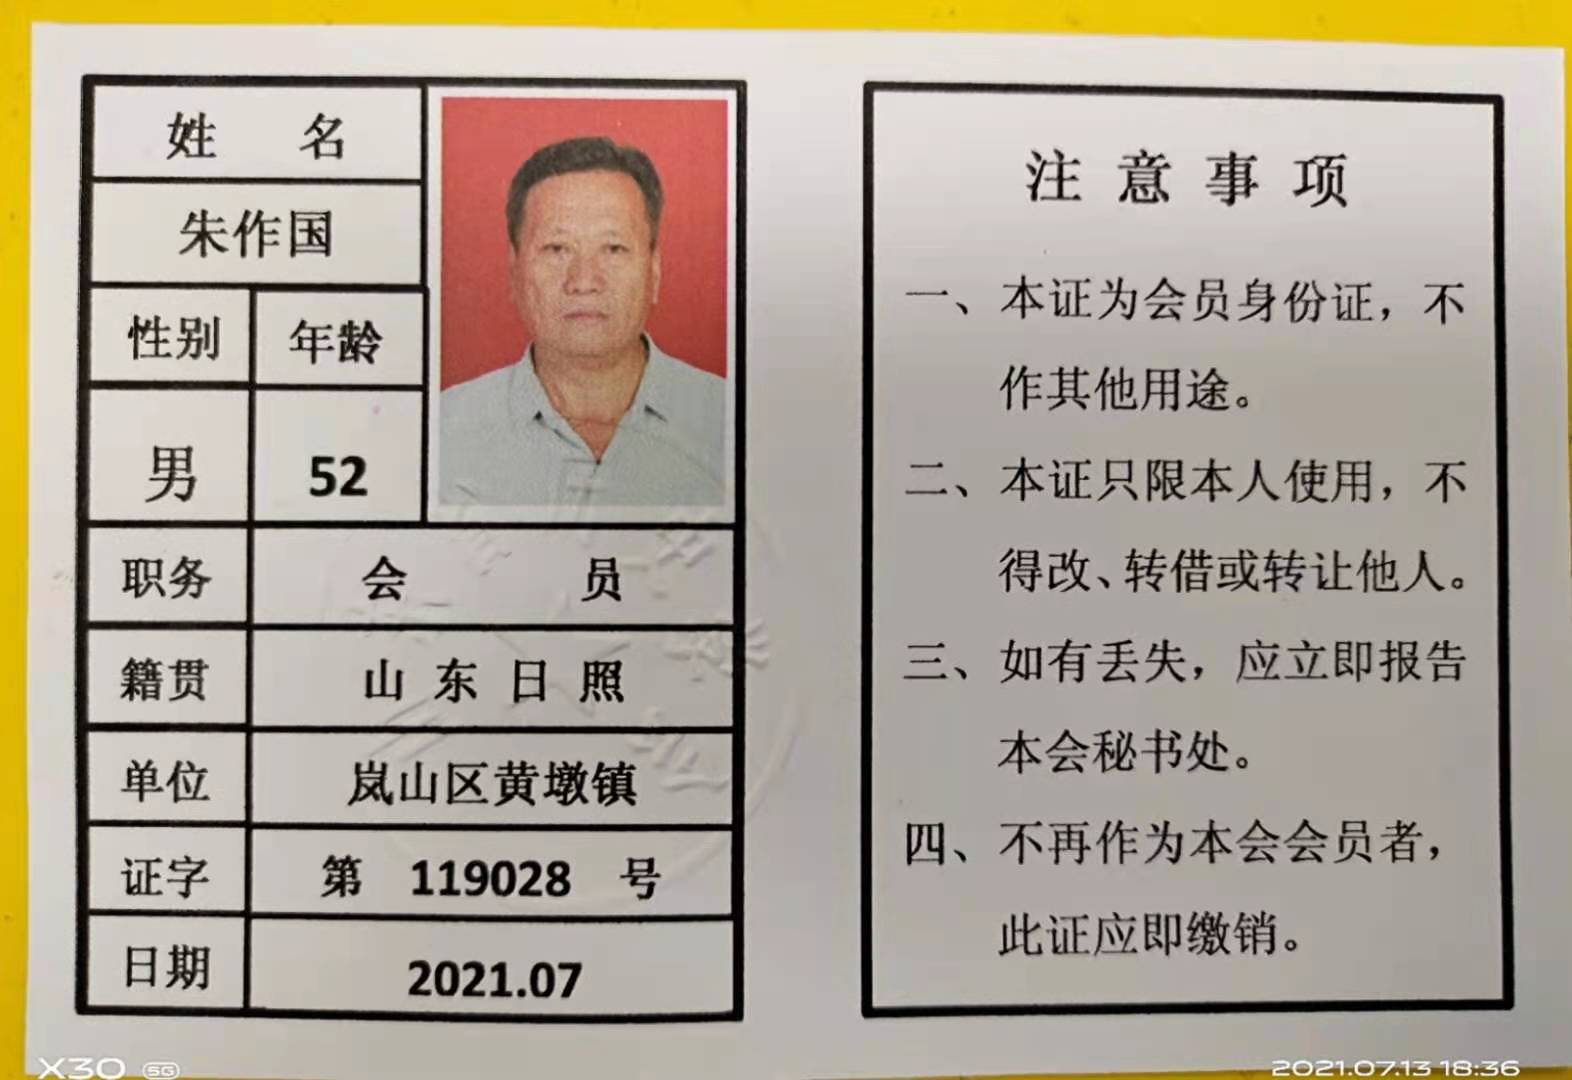 姓 名
朱作国
性别 年龄
男 52
职务 会 员
籍贯 山东日照
单位 岚山区黄墩镇
证字 第 119028 号
日期 2021.07
注意事项
一、本证为会员身份证，不
作其他用途。
二、本证只限本人使用，不
得改、转借或转让他人。
三、如有丢失，应立即报告
本会秘书处。
四、不再作为本会会员者，
此证应即缴销。
X30 5G
2021.07.13 18:36